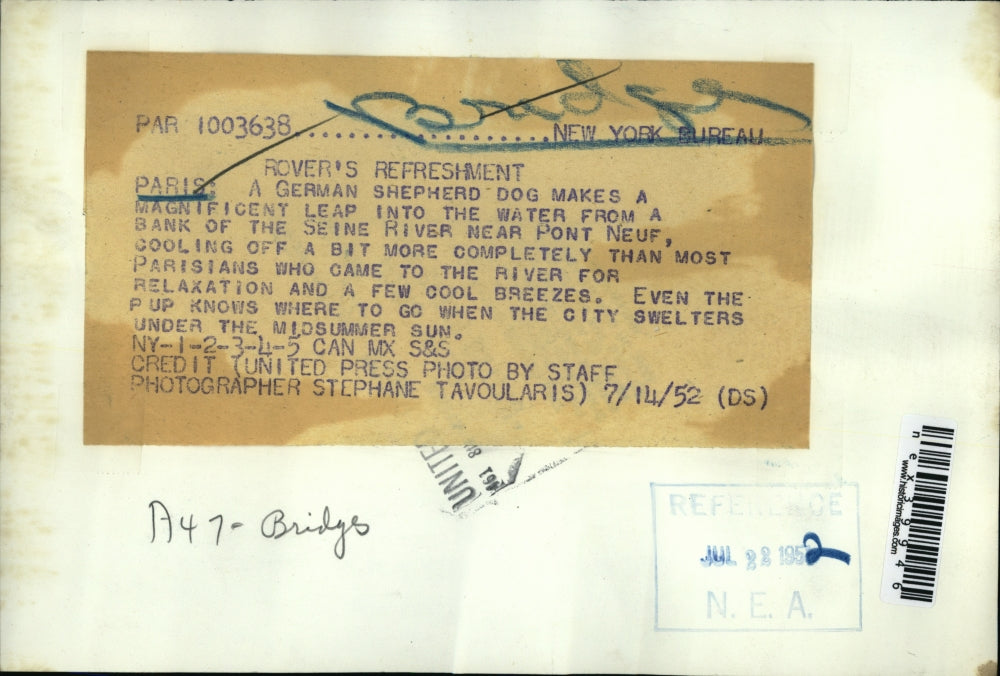 Bridges
PAR 1003638....................NEW YORK BUREAU
ROVER'S REFRESHMENT
PARIS: A GERMAN SHEPHERD DOG MAKES A
MAGNIFICENT LEAP INTO THE WATER FROM A
BANK OF THE SEINE RIVER NEAR PONT NEUF,
COOLING OFF A BIT MORE COMPLETELY THAN MOST
PARISIANS WHO CAME TO THE RIVER FOR
RELAXATION AND A FEW COOL BREEZES. EVEN THE
PUP KNOWS WHERE TO GO WHEN THE CITY SWELTERS
UNDER THE MIDSUMMER SUN.
NY-1-2-3-4-5 CAN MX S&S
CREDIT (UNITED PRESS PHOTO BY STAFF
PHOTOGRAPHER STEPHANE TAVOULARIS) 7/14/52 (DS)
UNITED
461
A47- Bridges
REFERENCE
JUL 22 1952
N. E. A.
nex39946
www.historicimages.com